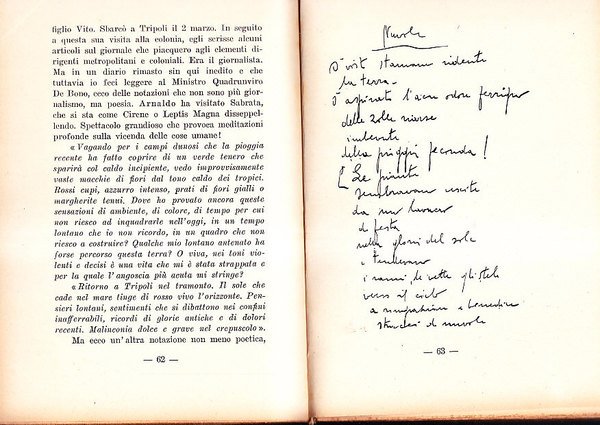 figlio Vito. Sbarcò a Tripoli il 2 marzo. In seguito
a questa sua visita alla colonia, egli scrisse alcuni
articoli sul giornale che piacquero agli elementi di-
rigenti metropolitani e coloniali. Era il giornalista.
Ma in un diario rimasto sin qui inedito e che
tuttavia io feci leggere al Ministro Quadrumviro
De Bono, ecco delle notazioni che non sono più gior-
nalismo, ma poesia. Arnaldo ha visitato Sabrata,
che si sta come Cirene o Leptis Magna disseppel-
lendo. Spettacolo grandioso che provoca meditazioni
profonde sulla vicenda delle cose umane!
« Vagando per i campi dunosi che la pioggia
recente ha fatto coprire di un verde tenero che
sparirà col caldo incipiente, vedo improvvisamente
vaste macchie di fiori dal tono caldo dei tropici.
Rossi cupi, azzurro intenso, prati di fiori gialli o
margherite tenui. Dove ho provato ancora queste
sensazioni di ambiente, di colore, di tempo per cui
non riesco ad inquadrarle nell'oggi, in un tempo
lontano che io non ricordo, in un quadro che non
riesco a costruire? Qualche mio lontano antenato ha
forse percorso questa terra? O viva, nei toni vio-
lenti e decisi è una vita che mi è stata strappata e
per la quale l'angoscia più acuta mi stringe?
« Ritorno a Tripoli nel tramonto. Il sole che
cade nel mare tinge di rosso vivo l'orizzonte. Pen-
sieri lontani, sentimenti che si dibattono nei confini
inafferrabili, ricordi di glorie antiche e di dolori
recenti. Malinconia dolce e grave nel crepuscolo ».
Ma ecco un'altra notazione non meno poetica,
— 62 —
Nuvole
stamane ridente
la terra
delle zolle riarse
imbevute
della pioggia feconda!
E Le piante
sembravano uscite
da un lavacro
di festa
nella gloria del sole
e tendevano
i rami, le vette gli steli
verso il cielo
a ringraziare e benedire
di nuvole
— 63 —